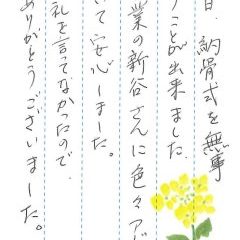 日、納骨式を無事
うことが出来ました。
業の新谷さんに色々アド
て安心しました。
礼を言てなかったので
ありがとうございました。